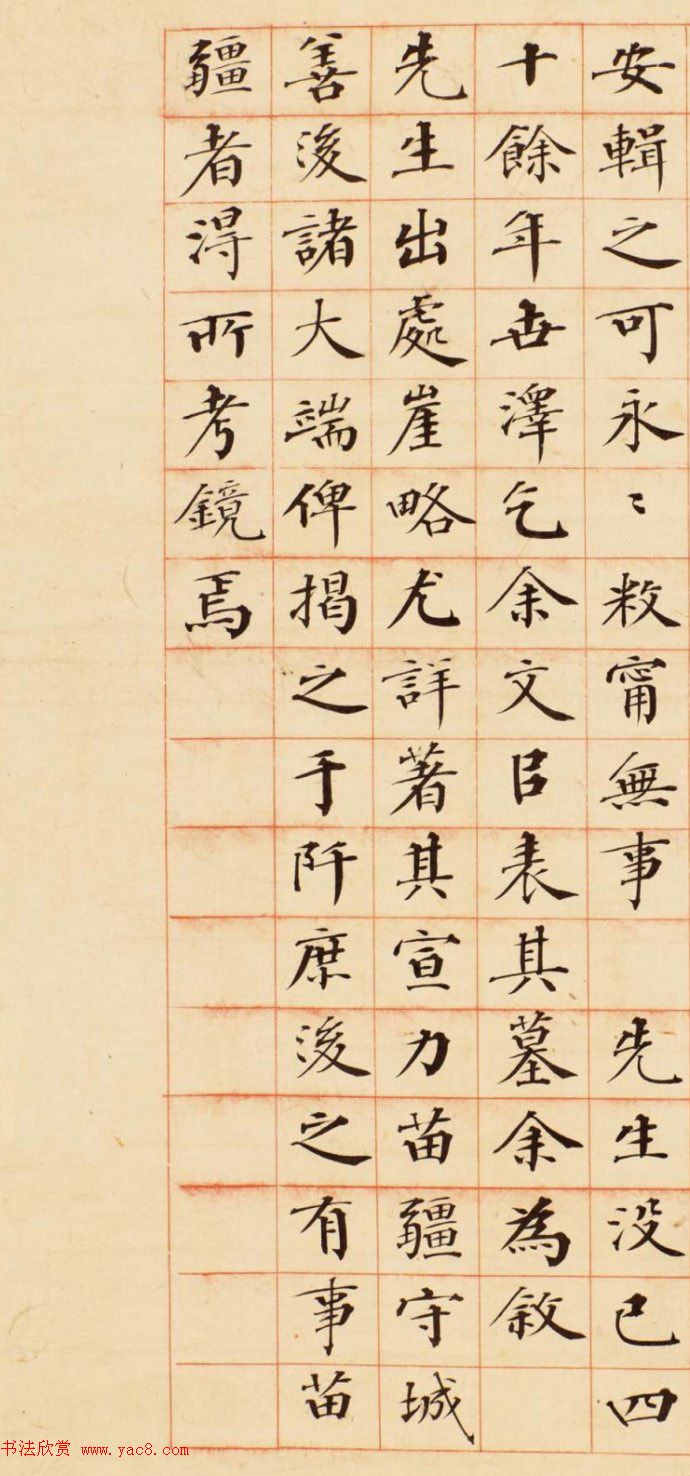 安輯之可永〻敉甯無事　先生没已四
十餘年世澤乞余文㠯表其墓余為敘
先生出處崖略尤詳著其宣力苗疆守城
善後諸大端俾揭之于阡庶後之有事苗
疆者得所考鏡焉
书法欣赏 www.yac8.com